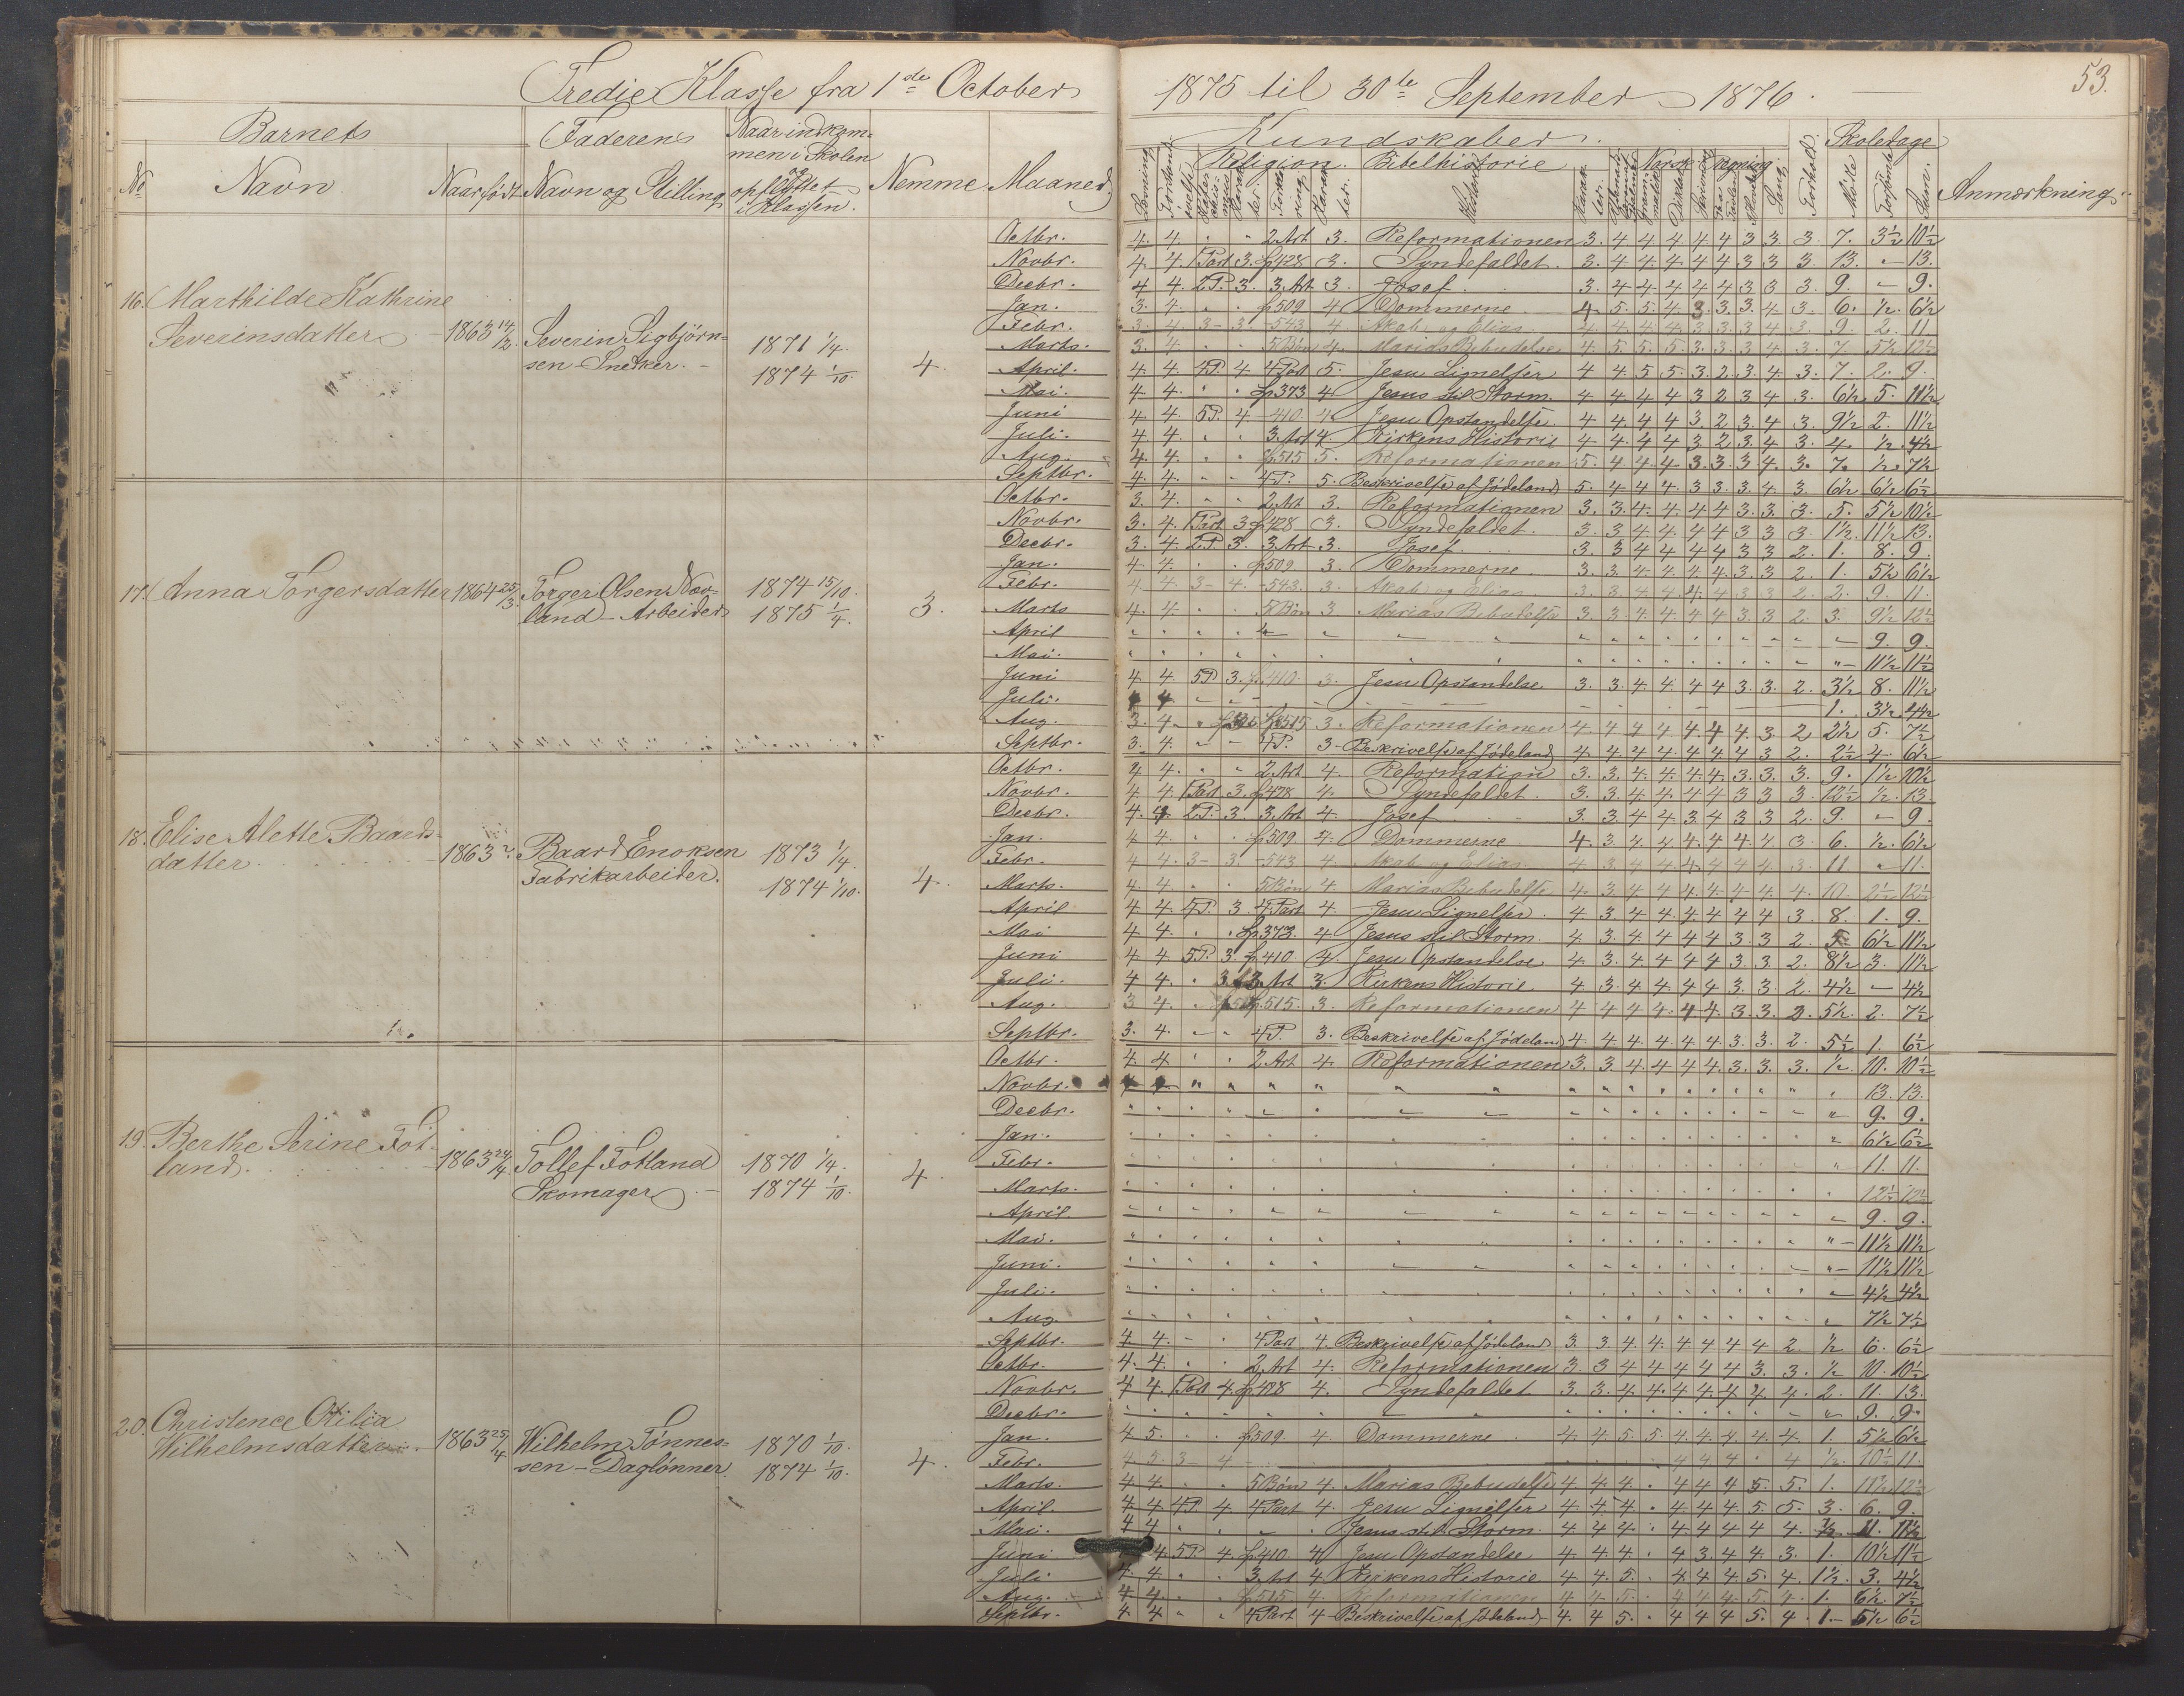 Tredie Klasse fra 1de October 1875 til 30te September 1876.
53.
Barnets
Faderens
Naar indkommen i Skolen og opflyttet i Klassen.
Nemme
Maaned
Kundskaber.
Skoledage
No
Navn
Naar født
Navn og Stilling
Religion. Bibelhistorie
Norsk
Regning
Sang
Forhold.
Mødte
Forsømte
Sum.
Anmærkning.
16. Marthilde Kathrine
Severinsdatter 1863 14/2.
Severin Sigbjörn-
sen - Snedker.
1871 1/4.
1874 1/10.
4.
Octbr. 4. 4. " " 2 Art 3. Reformationen 3. 4 4 4 4 4 3 3. 3. 7. 3½ 10½
Novbr. 4. 4. 1 Part 3. Sp 428 3. Syndefaldet. 3. 4 4. 4. 4 4 3 3 3 13. - 13.
Decbr. 4 4. 2 P. 3. 3. Art 3 Josef 3. 4 4 4 4 4 3 3. 3. 9. - 9.
Jan. 3. 4. " " Sp 509 4 Dommerne 4. 5. 5. 4. 3. 3. 3. 4 3. 6. ½. 6½
Febr. 3. 4 3- 3. - 543. 4. Akab og Elias 4. 4. 4. 4. 3. 3. 3. 4 3. 9. 2. 11
Marts. 3. 4 " " 5 Bön 4. Marias Bebudelse 4. 5. 5. 5. 3. 3. 3 4. 3. 7. 5½ 12½
April. 4. 4. 4 P. 4 4 Part 5. Jesu Lignelser 4 4. 5 5. 3. 2. 3. 4 3. 7. 2. 9.
Mai. 4. 4. " " Sp 373 4 Jesus stil. Storm. 4 4 4 4 3 2 3 4 3. 6½ 5. 11½
Juni 4 4. 5 P. 4. - 410 4. Jesu Opstandelse 4 4. 4. 4 3 2. 3. 4 3. 9½ 2. 11½
Juli. 4. 4. " " 3. Art 4. Kirkens Historie 4 4. 4 4 3 2. 3. 4 3. 4. ½. 4½
Aug. 4. 4. " " Sp 515 5. Reformationen 5. 4 4. 4 3. 3. 3 4. 3. 7. ½. 7½
Septbr. 4. 4. " " 4 P. 5. Beskrivelse af Jödeland 5. 4 4 4. 3 3. 3. 4 3. 6½ 6½ 6½
17. Anna Torgersdatter 1864 25/3.
Torger Olsen Nor-
land - Arbeider
1874 15/10.
1875 1/4.
3.
Octbr. 3. 4. " " 2. Art 3. Reformationen 3. 3. 4. 4 4 4 3. 3. 3. 5. 5½ 10½
Novbr. 3. 4. 1 Part 3 Sp 428 3. Syndefaldet. 3. 3 4. 4. 4 4 3 3 3. 1½. 11½ 13.
Decbr. 3. 4 2 P. 3. 3. Art 3. Josef. 3. 3 4 4 4 4 3 3 2. 1. 8. 9.
Jan. 4. 4. " " Sp 509 3. Dommerne 3. 3. 4. 4. 4. 4. 3. 3 2. 1. 5½ 6½
Febr. 4. 4. 3- 4. - 543. 3. Akab og Elias 3. 3 4 4 4 4 3 3 2. 2. 9. 11.
Marts 4. 4. " " 5 Bön 3 Marias Bebudelse 3. 3. 4. 4. 4 4 3. 3 2 3. 9½ 12½
April - 9. 9.
Mai. " - 11½ 11½
Juni 4. 4 5 P 3. Sp 410. 3. Jesu Opstandelse 3. 3. 4. 4. 4 4 3. 3. 2. 3½ 8. 11½
Juli. 1. 3½ 4½
Aug. 3. 4. " Sp 515 3. Reformationen 4. 4 4 4 4. 4 4. 3. 2 2½ 5. 7½
Septbr. 3. 4. " " 4 P. 3- Beskrivelse af Jödeland 4. 4. 4. 4. 4. 4. 4 3 2. 2½ 4. 6½
18. Elise Alette Baards-
datter. 1863 ?
Baard Enoksen
Fabrikarbeider.
1873 1/4.
1874 1/10.
4.
Octbr. 4 4. " " 2. Art 4. Reformation 3. 3. 4. 4. 4. 4. 3. 3. 3. 9. 1½ 10½
Novbr. 4. 4. 1 Part 3. Sp 428 4. Syndefaldet. 3. 3. 4. 4. 4 4 3 3 3. 12½ ½. 13
Decbr. 4. 4. 2 P. 3. 3. Art 4. Josef 3. 3 4 4 3 4 3 3 2. 9. - 9.
Jan. 4 4. " " Sp 509 4. Dommerne 4. 3 4. 4. 4. 4. 4 4. 3 6. ½. 6½
Febr. 4 4. 3- 3. - 543 4. Akab og Elias 4 3 4 4 4. 4 4 4 3. 11 " 11.
Marts. 4. 4. " " 5 Bön 4. Marias Bebudelse 4. 3 4 4 4. 4. 4 4. 4. 10. 2½ 12½
April 4 4. 4 P. 3 4 Part 4. Jesu Lignelser. 4 3. 4 4. 4 4 4 4 3. 8. 1. 9.
Mai 4 4. " " Sp 373. 4 Jesus stil. Storm. 4 3. 4. 4 4 4 3. 3 2. 5 6½ 11½
Juni 4 4. 5 P. 3. Sp 410. 4 Jesu Opstandelse 4. 3 4. 4 4 4 3. 3. 2. 8½ 3. 11½
Juli. 4 4. " 3. Art 3. Kirkens Historie 4 3 4 4. 4 4 3 3. 2. 4½ - 4½
Aug. 3 4. " Sp 515. 3. Reformationen 4 4 4 4. 4 4. 3. 3. 2. 5½. 2. 7½
Septbr. 3. 4. " " 4 P. 3. Beskrivelse af Jödeland 4. 4. 4. 4. 4. 4 3. 3. 2. 5½ 1. 6½
19. Berthe Serine Fot-
land. 1863 24/4.
Tollef Fotland
Skomager
1870 1/4.
1874 1/10.
4
Octbr. 4 4 " " 2 Art 4. Reformationen 3. 3 4. 4 4 4. 3. 3. 3. ½. 10. 10½
Novbr. " 13. 13.
Decbr. " 9. 9.
Jan. " 6½ 6½
Febr. " 11. 11.
Marts. " 12½ 12½
April. - 9. 9.
Mai. " - 11½ 11½
Juni. " - 11½ 11½
Juli. - 4½ 4½
Aug. - 7½ 7½
Septbr. 4 4. - " 4 Part 4. Beskrivelse af Jödeland 3. 3 4. 4. 4 4 4 4 2. ½ 6. 6½
20. Christence Otilia
Wilhelmsdatter. 1863 25/4
Wilhelm Tönnes-
sen - Daglönner.
1870 1/10.
1874 1/10.
4.
Octbr. 4. 4. " " 2. Art 4. Reformationen 3. 3 4 4 4 4 4 3. 3. ½ 10. 10½
Novbr. 4 4. 1 Part 4. Sp 428 4. Syndefaldet 3. 3. 4. 4. 4 4. 4. 4 4. 2. 11. 13.
Decbr. " 9. 9.
Jan. 4 5. " " Sp 509. 4. Dommerne 4. 4 5 5. 4. 4. 4. 4. 4. 1. 5½ 6½
Febr. 4 5. 3- 4 - 4 4 4 " 4 ½. 10½ 11.
Marts. 4 4. " " 5 Bön 4. Marias Bebudelse 4 4. 4. " 4 4 4 5. 5. 1. 11½ 12½
April. 4 4 4 P. 4. 4 Part 4. Jesu Lignelser 4. 4. 4. " 4 4 4. 5. 5. 3. 6. 9.
Mai. 4 4 " " - " Jesus stil. Storm. 4 4 4. " 4. 4 4 4 4. ½. 11. 11½
Juni 4. 5 P. 4. Sp 410. 4 Jesu Opstandelse 4. 4. 4. " 4 3. 4 4. 3. 1. 10½ 11½
Juli 4. 4. " " 3. Art 4 Kirkens Historie 4. 4 5. " 4. 4 4 5. 4. 1½. 3. 4½
Aug. 4 4. " " Sp 515 4. Reformationen 4 4 5. " 4 4 4. 5. 4. 1. 6½. 7½
Septbr. 4. 4 " " 4 Part 4- Beskrivelse af Jödeland 4. 4 5. " 4 4 4 5. 4. 1.- 5½ 6½